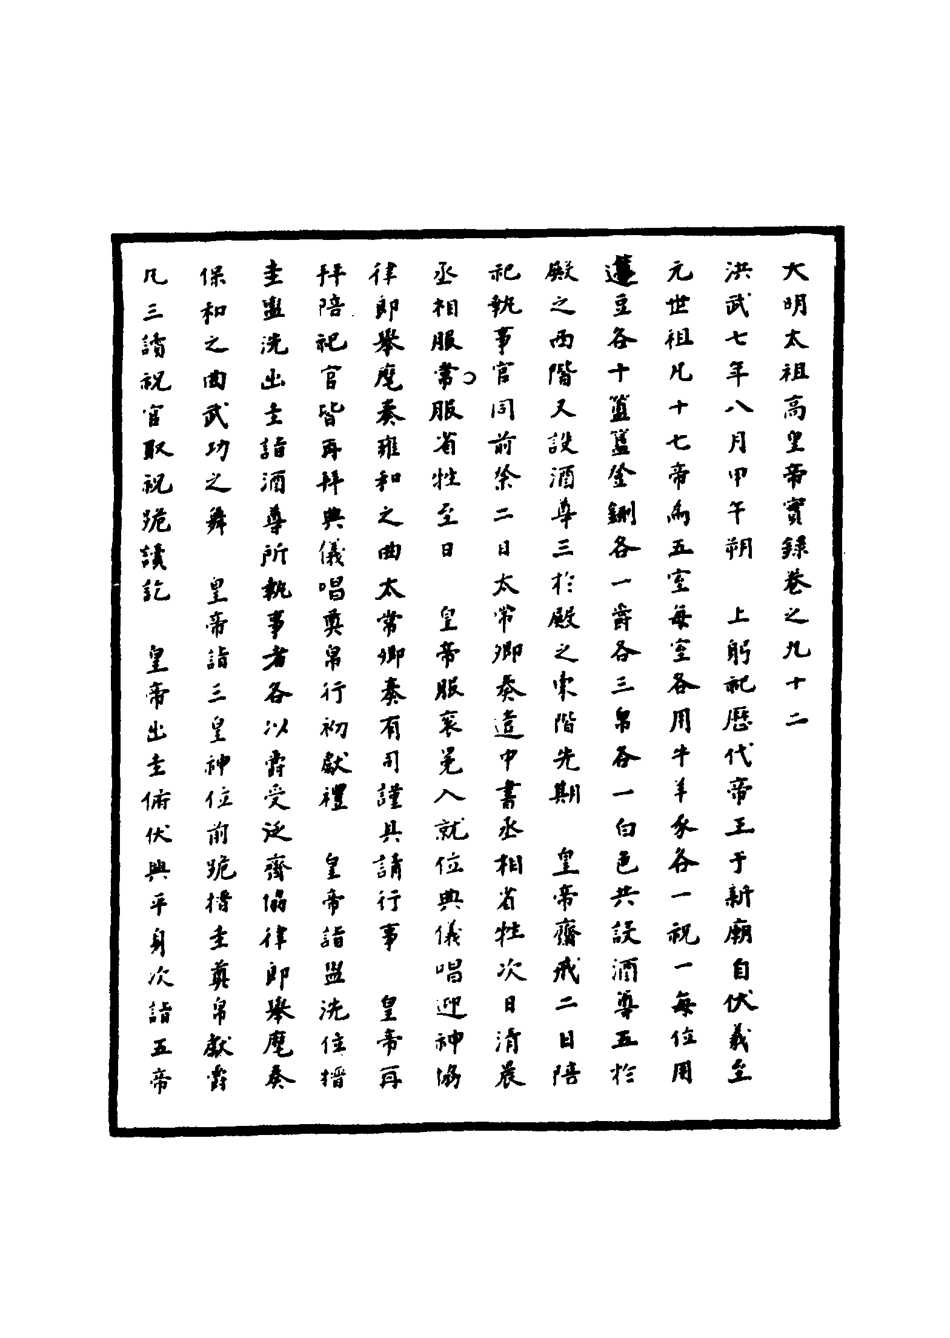 大明太祖高皇帝實錄卷之九十二
洪武七年八月甲午朔　上躬祀歷代帝王于新廟自伏羲至
元世祖凡十七帝為五室每室各用牛羊豕各一祝一每位用
籩豆各十簠簋登鉶各一爵各三帛各一白色共設酒尊五於
殿之西階又設酒尊三於殿之東階先期　皇帝齋戒二日陪
祀執事官同前祭二日太常卿奏遣中書丞相省牲次日清晨
丞相服常服省牲至日　皇帝服袞冕入就位典儀唱迎神協
律郎舉麾奏雍和之曲太常卿奏有司謹具請行事　皇帝再
拜陪祀官皆再拜典儀唱奠帛行初獻禮　皇帝詣盥洗位搢
圭盥洗出圭詣酒尊所執事者各以爵受泛齊協律郎舉麾奏
保和之曲武功之舞　皇帝詣三皇神位前跪搢圭奠帛獻爵
凡三讀祝官取祝跪讀訖　皇帝出圭俯伏興平身次詣五帝